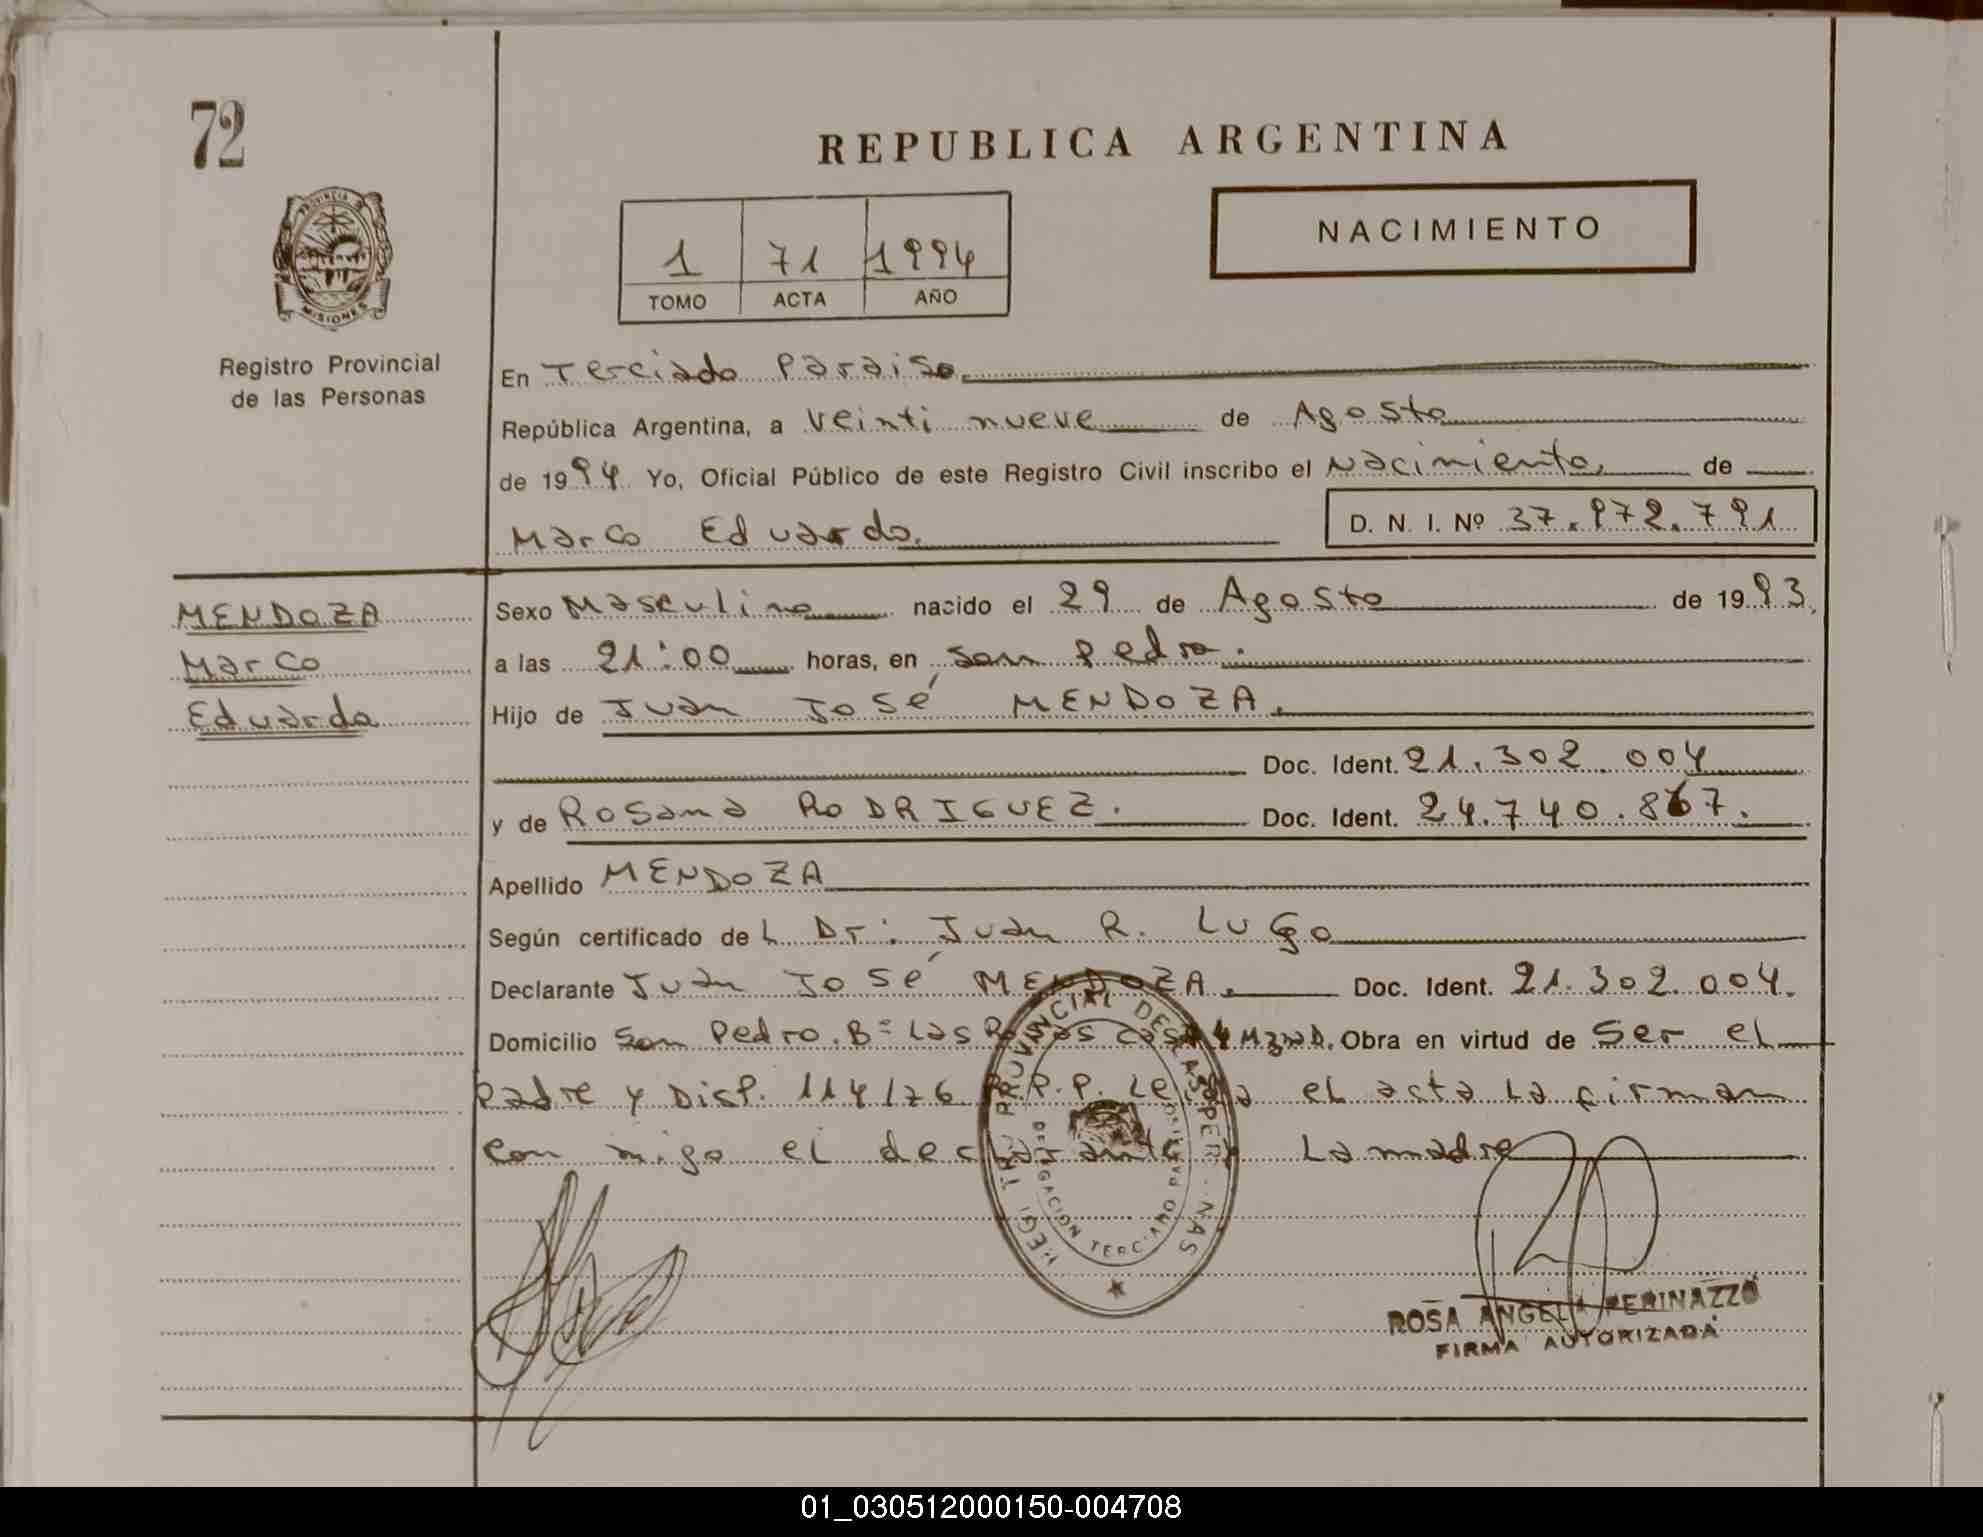 72
REPUBLICA ARGENTINA
PROVINCIA D
MISIONES
1 71 1994
TOMO ACTA AÑO
NACIMIENTO
Registro Provincial
de las Personas
En Terciado Paraiso.
República Argentina, a veinti nueve de Agosto
de 1994 Yo, Oficial Público de este Registro Civil inscribo el Nacimiento, de
Marco Eduardo. D. N. I. Nº 37.972.791
MENDOZA
Marco
Eduardo
Sexo Masculino nacido el 29 de Agosto de 1993,
a las 21:00 horas, en San Pedro.
Hijo de Juan José MENDOZA.
Doc. Ident. 21.302.004
y de Rosana RODRIGUEZ. Doc. Ident. 24.740.867.
Apellido MENDOZA
Según certificado de L Dr: Juan R. Lugo
Declarante Juan José MENDOZA. Doc. Ident. 21.302.004.
Domicilio San Pedro. Bº Las Obra en virtud de Ser el
padre y Disp. 114/76 R.P.P. Leida el acta la firman
con migo el declarante La madre
PROVINCIAL DE LAS PER NAS
DELEGACION PARAISO
ROSA ANGELA PERINAZZO
FIRMA AUTORIZADA
01_030512000150-004708